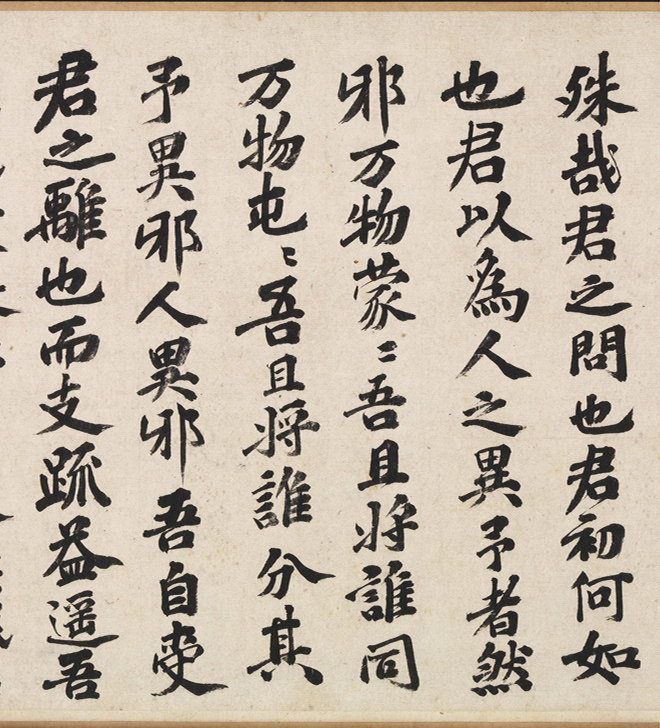 殊哉君之問也君初何如
也君以為人之異予者然
邪万物蒙〻吾且将誰同
万物屯〻吾且将誰分其
予異邪人異邪吾自
君之離也而支疏益遥吾